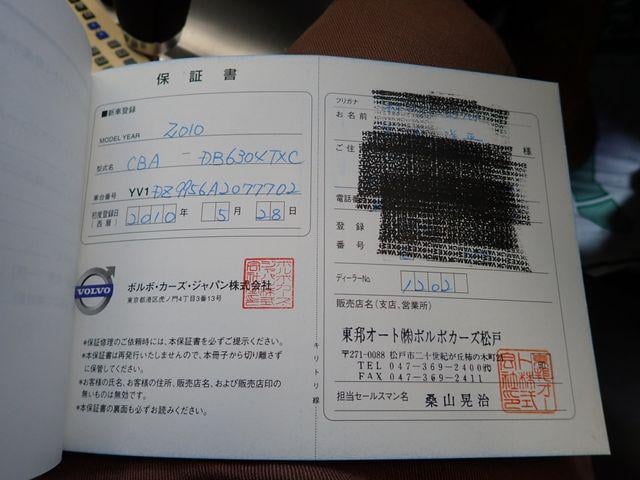 保証書
■新車登録
MODEL YEAR 2010
型式名 CBA - DB6304TXC
車台番号 YV1DZ9956A2077702
初度登録日(西暦) 2010年 5月 28日
VOLVO
ボルボ・カーズ・ジャパン株式会社
東京都港区虎ノ門4丁目3番13号
*保証修理のご依頼時には、本保証書を必ずご提示ください。
*本保証書は再発行いたしませんので、本冊子から切り離さずに保管してください。
*お客様の氏名、お客様の住所、販売店名、および販売店印の無いものは無効です。
*本保証書の裏面も必ずお読みください。
キリトリ線
フリガナ
お名前
様
ご住
電話番
登録
番号
ディーラーNo. 1202
販売店名(支店、営業所)
東邦オート㈱ボルボカーズ松戸
〒271-0088 松戸市二十世紀が丘柿の木町
TEL 047-369-2400㈹
FAX 047-369-2411
担当セールスマン名 桑山晃治